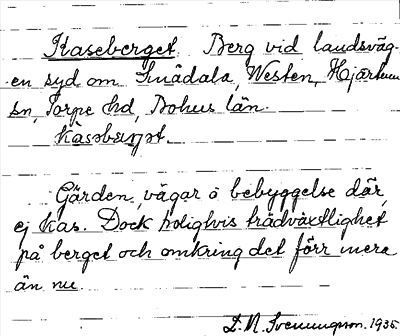 Kaseberget. Berg vid landsväg-
en syd om Smådala, Westen, Hjärtum
sn, Torpe hd, Bohus län.
Kasebärjet.
Gärden, vägar o bebyggelse där,
ej kas. Dock troligtvis trädväxtlighet
på berget och omkring det förr mera
än nu.
D. N. Svenungson. 1935.